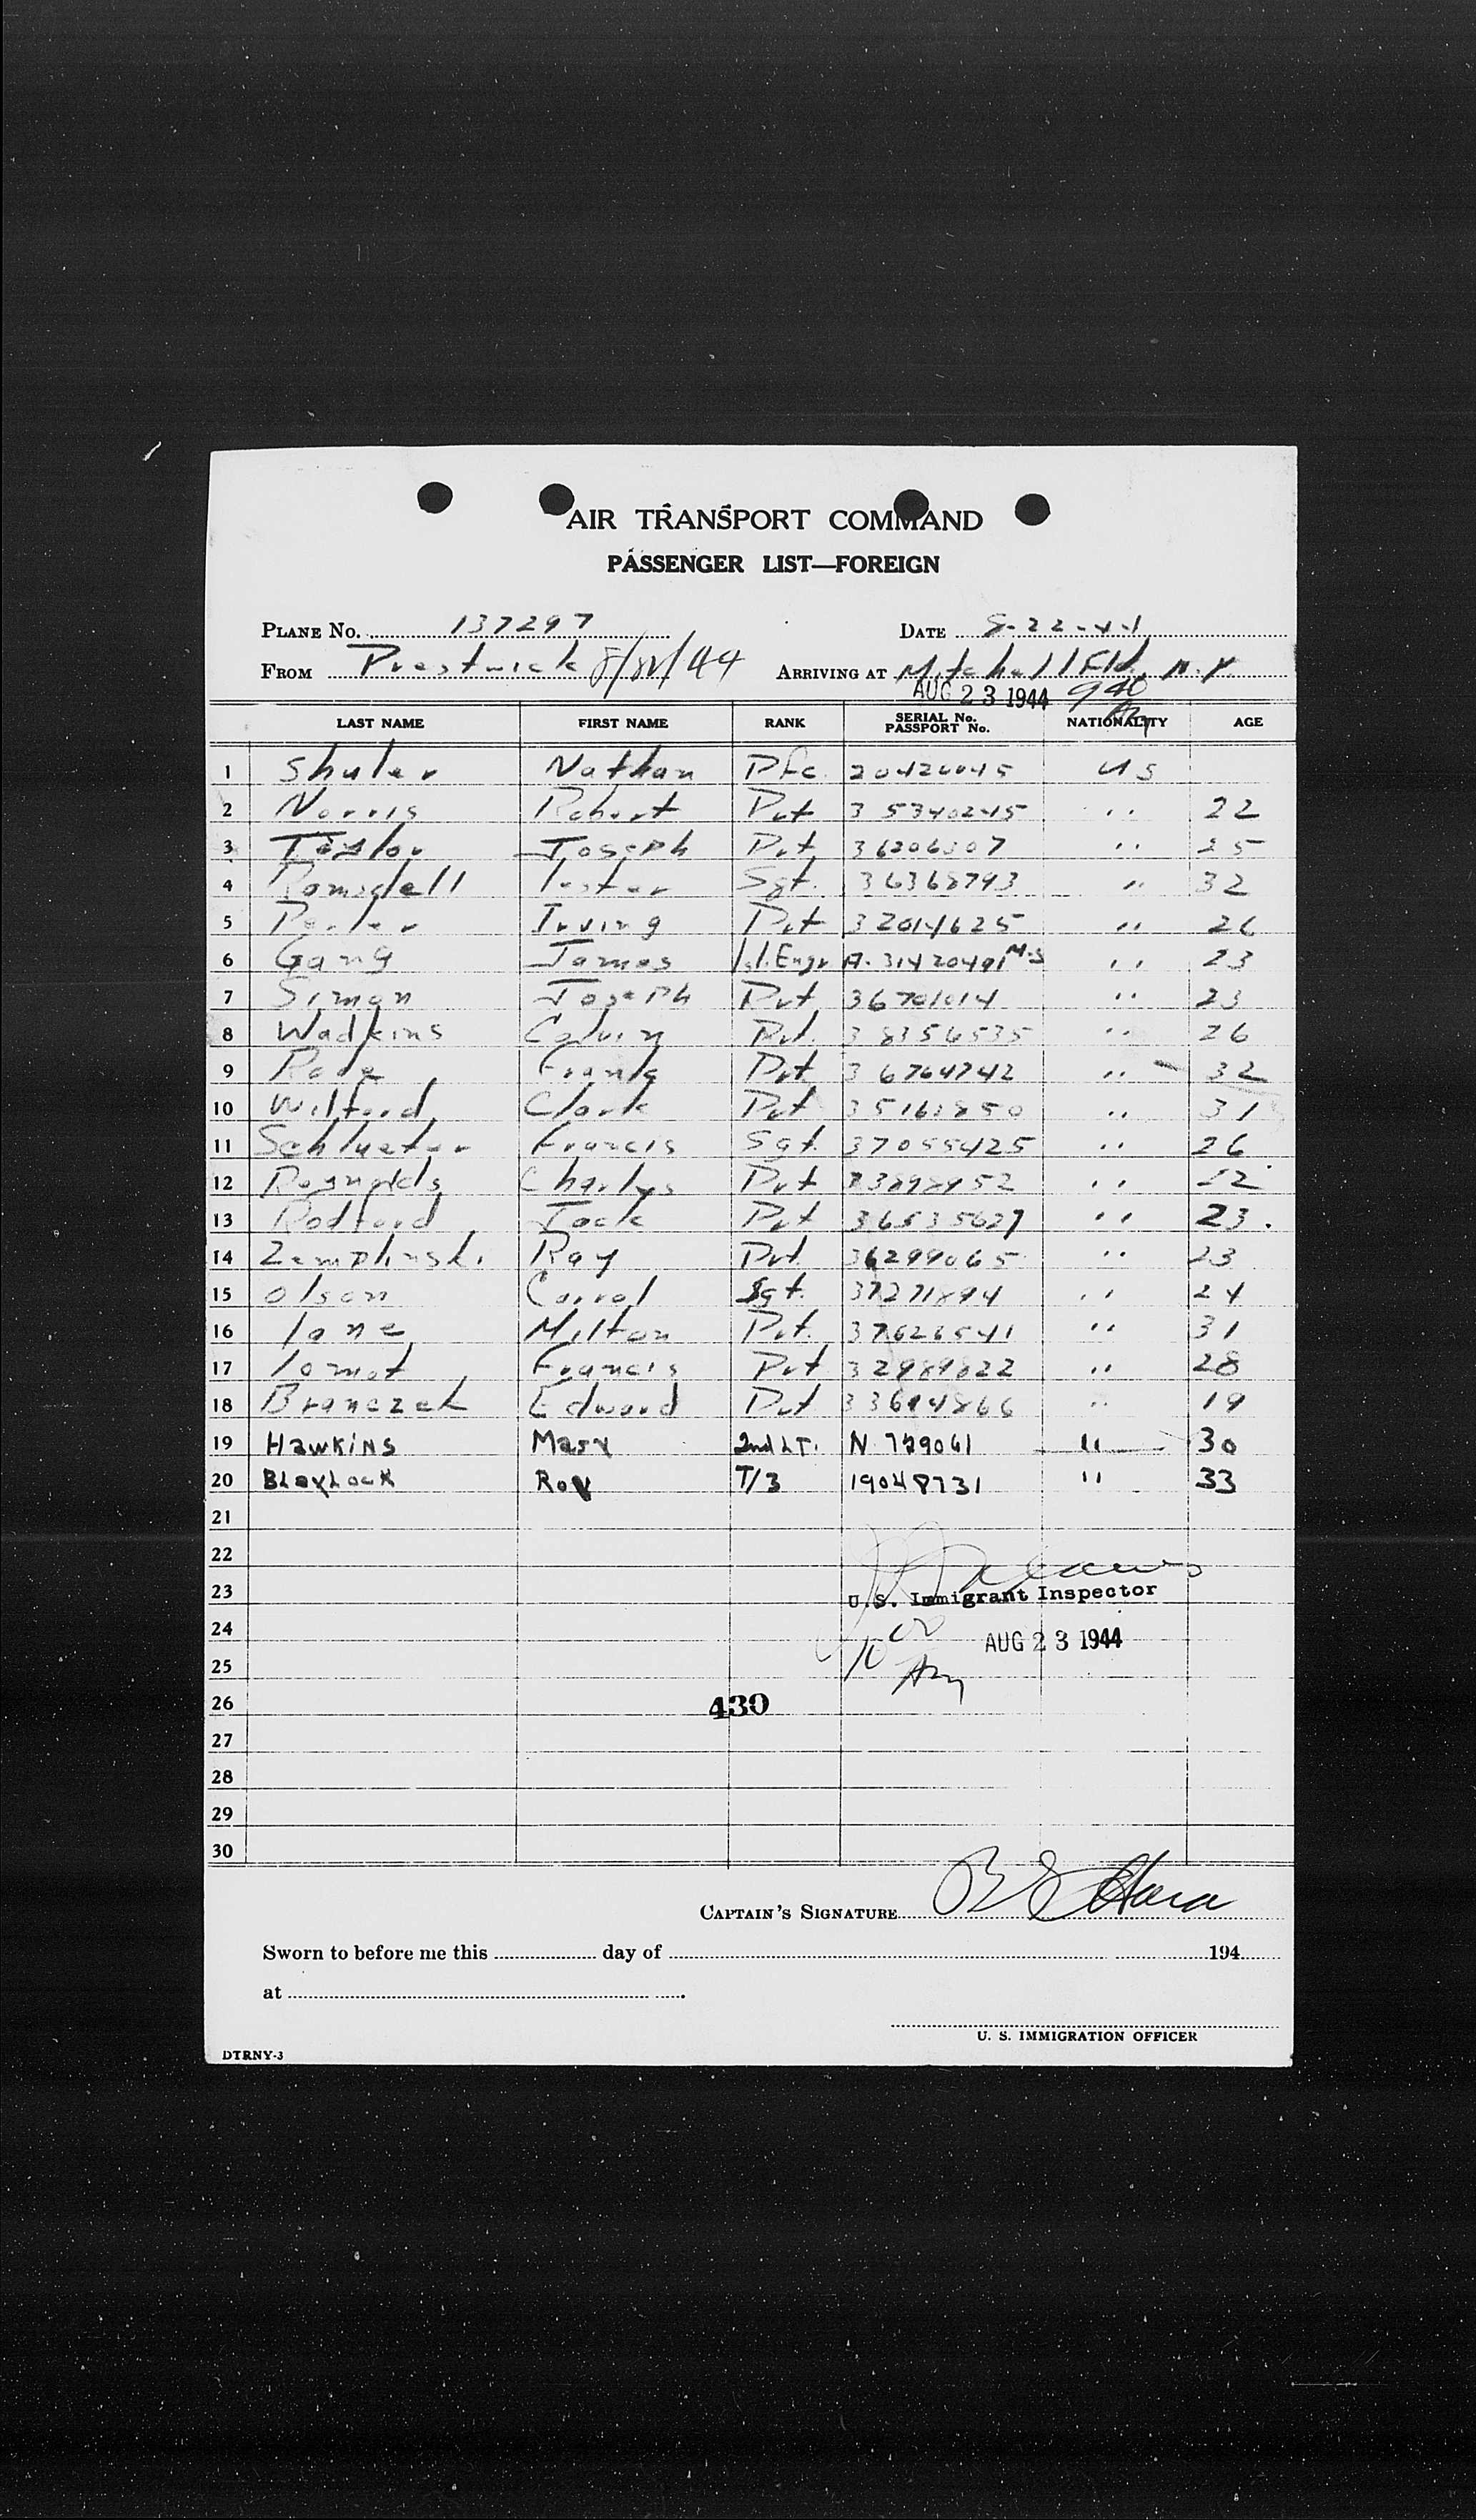 AIR TRANSPORT COMMAND
PASSENGER LIST—FOREIGN
PLANE No. 137297 DATE 8-22-44
FROM Prestwick 8/22/44 ARRIVING AT Mitchell Fld, N.Y.
AUG 23 1944 940 Am
LAST NAME FIRST NAME RANK SERIAL No. PASSPORT No. NATIONALITY AGE
1 Shuler Nathan Pfc. US
2 Norris Robert Pvt 35340245 " 22
3 Taylor Joseph Pvt 36206307 " 25
4 Ramsdell Lester Sgt. 36368793 " 32
5 Irving Pvt 32014625 " 26
6 Gang James 1st.Engr A-31420491 M.S " 23
7 Simon Joseph Pvt 36701014 " 23
8 Wadkins Calvin Pvt. 38356535 " 26
9 Rode Frank Pvt 36764742 " 32
10 Wilford Clark Pvt 35161850 " 31
11 Schlueter Francis Sgt. 37055425 " 26
12 Reynolds Charles Pvt "
13 Radford Jack Pvt 36535627 " 23.
14 Ray Pvt 36299065 " 23
15 Olson Carrol Sgt. 37271894 " 24
16 Lane Milton Pvt. 37626541 " 31
17 Francis Pvt 32989822 " 28
18 Branczek Edward Pvt 33614866 " 19
19 Hawkins Mary 2nd LT. N 729061 " 30
20 Blaylock Roy T/3 19048731 " 33
21
22
23 U.S. Immigrant Inspector
24 10 00 AUG 23 1944
25 Am
26 430
27
28
29
30
CAPTAIN'S SIGNATURE
Sworn to before me this day of 194
at .
U. S. IMMIGRATION OFFICER
DTRNY-3